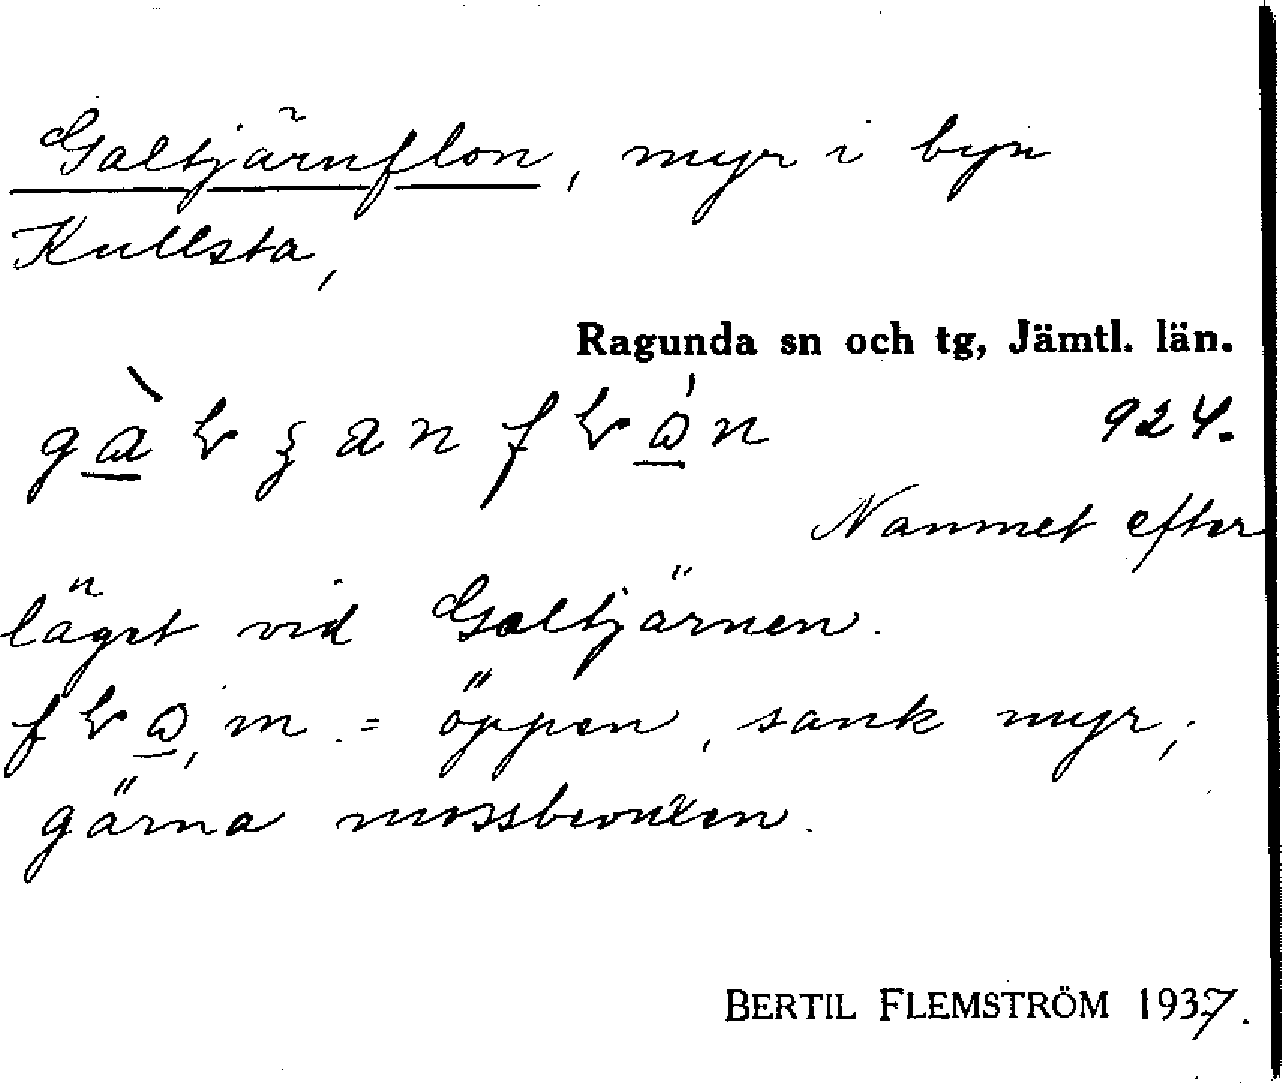 Galtjärnflon, myr i byn
Kullsta,
Ragunda sn och tg, Jämtl. län.
924.
Namnet efter
läget vid Galtjärnen.
m. = öppen, sank myr,
gärna mossbevuxen.
BERTIL FLEMSTRÖM 1937.